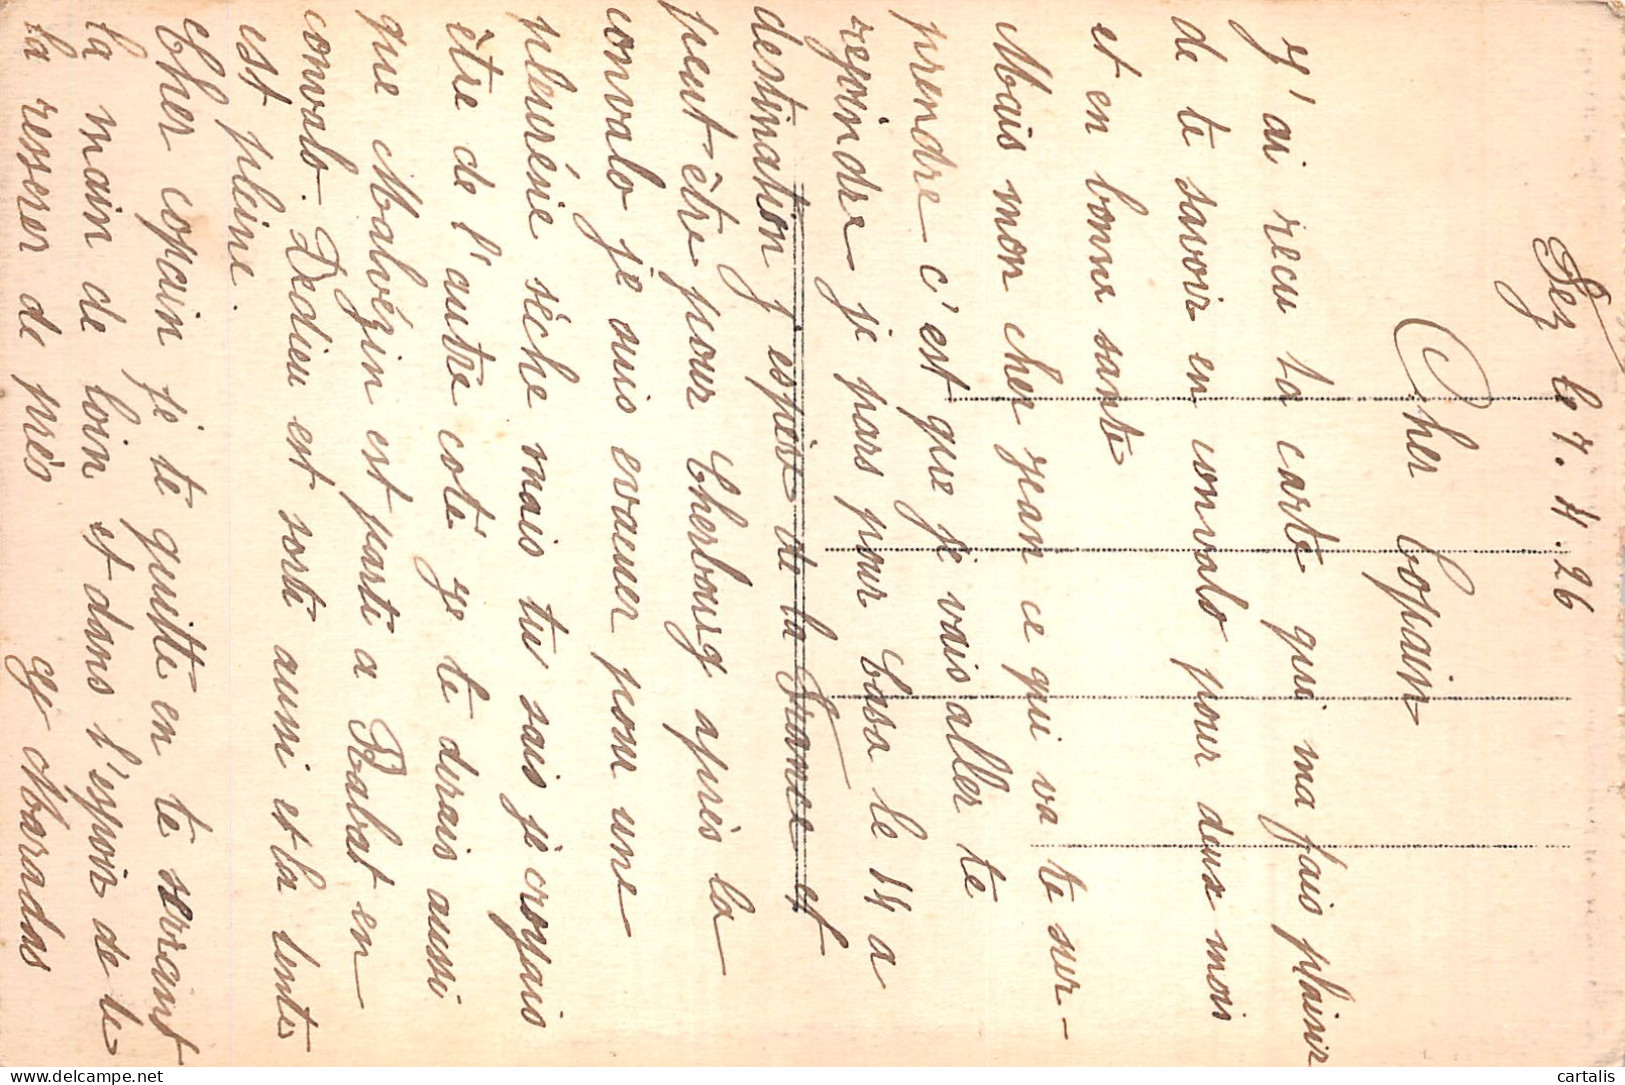 Fez le 7.4.26
Cher Copain
J'ai recu ta carte qui ma fais plaisir
de te savoir en convalo pour deux mois
et en bonne sante
Mais mon cher Jean ce qui va te sur-
prendre c'est que je vais aller te
rejoindre je pars pour Casa le 14 a
destination j'espère de la France et
peut être pour Cherbourg après la
convalo je suis evacuer pour une
pleurésie sèche mais tu sais je croyais
être de l'autre cote je te dirais aussi
que Malvégin est parti a Rabat en
convalo. Dedieu est sorti aussi et la tente
est pleine.
Cher copain je te quitte en te serrant
la main de loin et dans l'espoir de te
la resserer de près
cartalis